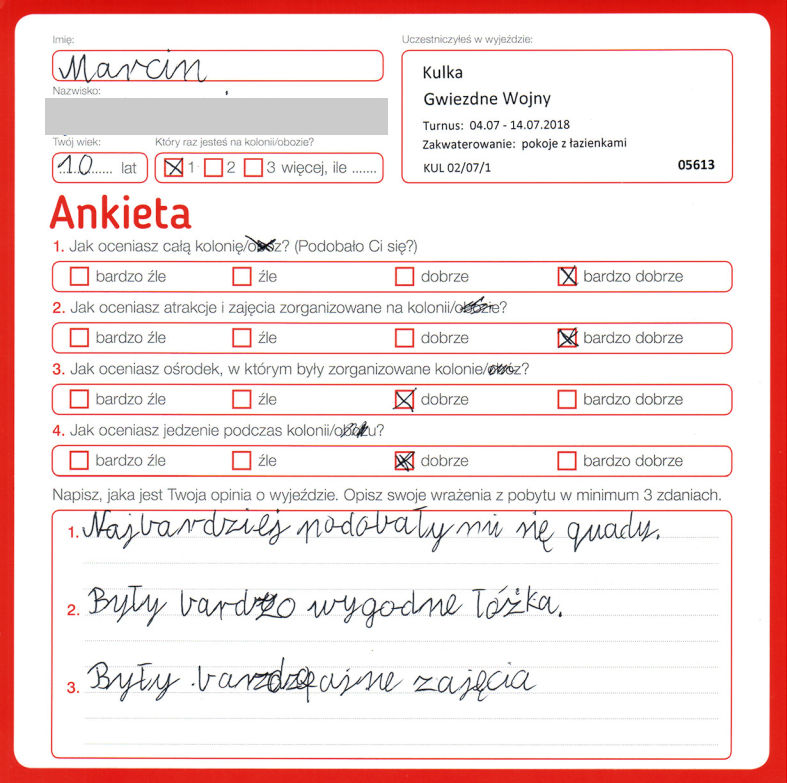 Imię:
Uczestniczyłeś w wyjeździe:
Marcin
Kulka
Nazwisko:
Gwiezdne Wojny
Turnus: 04.07 - 14.07.2018
Twój wiek:
Który raz jesteś na kolonii/obozie?
Zakwaterowanie: pokoje z łazienkami
10 lat
1 2 3 więcej, ile .......
KUL 02/07/1
05613
Ankieta
1. Jak oceniasz całą kolonię/obóz? (Podobało Ci się?)
bardzo źle źle dobrze bardzo dobrze
2. Jak oceniasz atrakcje i zajęcia zorganizowane na kolonii/obozie?
bardzo źle źle dobrze bardzo dobrze
3. Jak oceniasz ośrodek, w którym były zorganizowane kolonie/obóz?
bardzo źle źle dobrze bardzo dobrze
4. Jak oceniasz jedzenie podczas kolonii/obozu?
bardzo źle źle dobrze bardzo dobrze
Napisz, jaka jest Twoja opinia o wyjeździe. Opisz swoje wrażenia z pobytu w minimum 3 zdaniach.
1. Najbardziej podobały mi się quady.
2. Były bardzo wygodne łóżka.
3. Były zajęcia